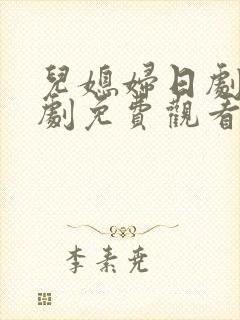 兒媳婦日劇
劇免費觀看
李素尭